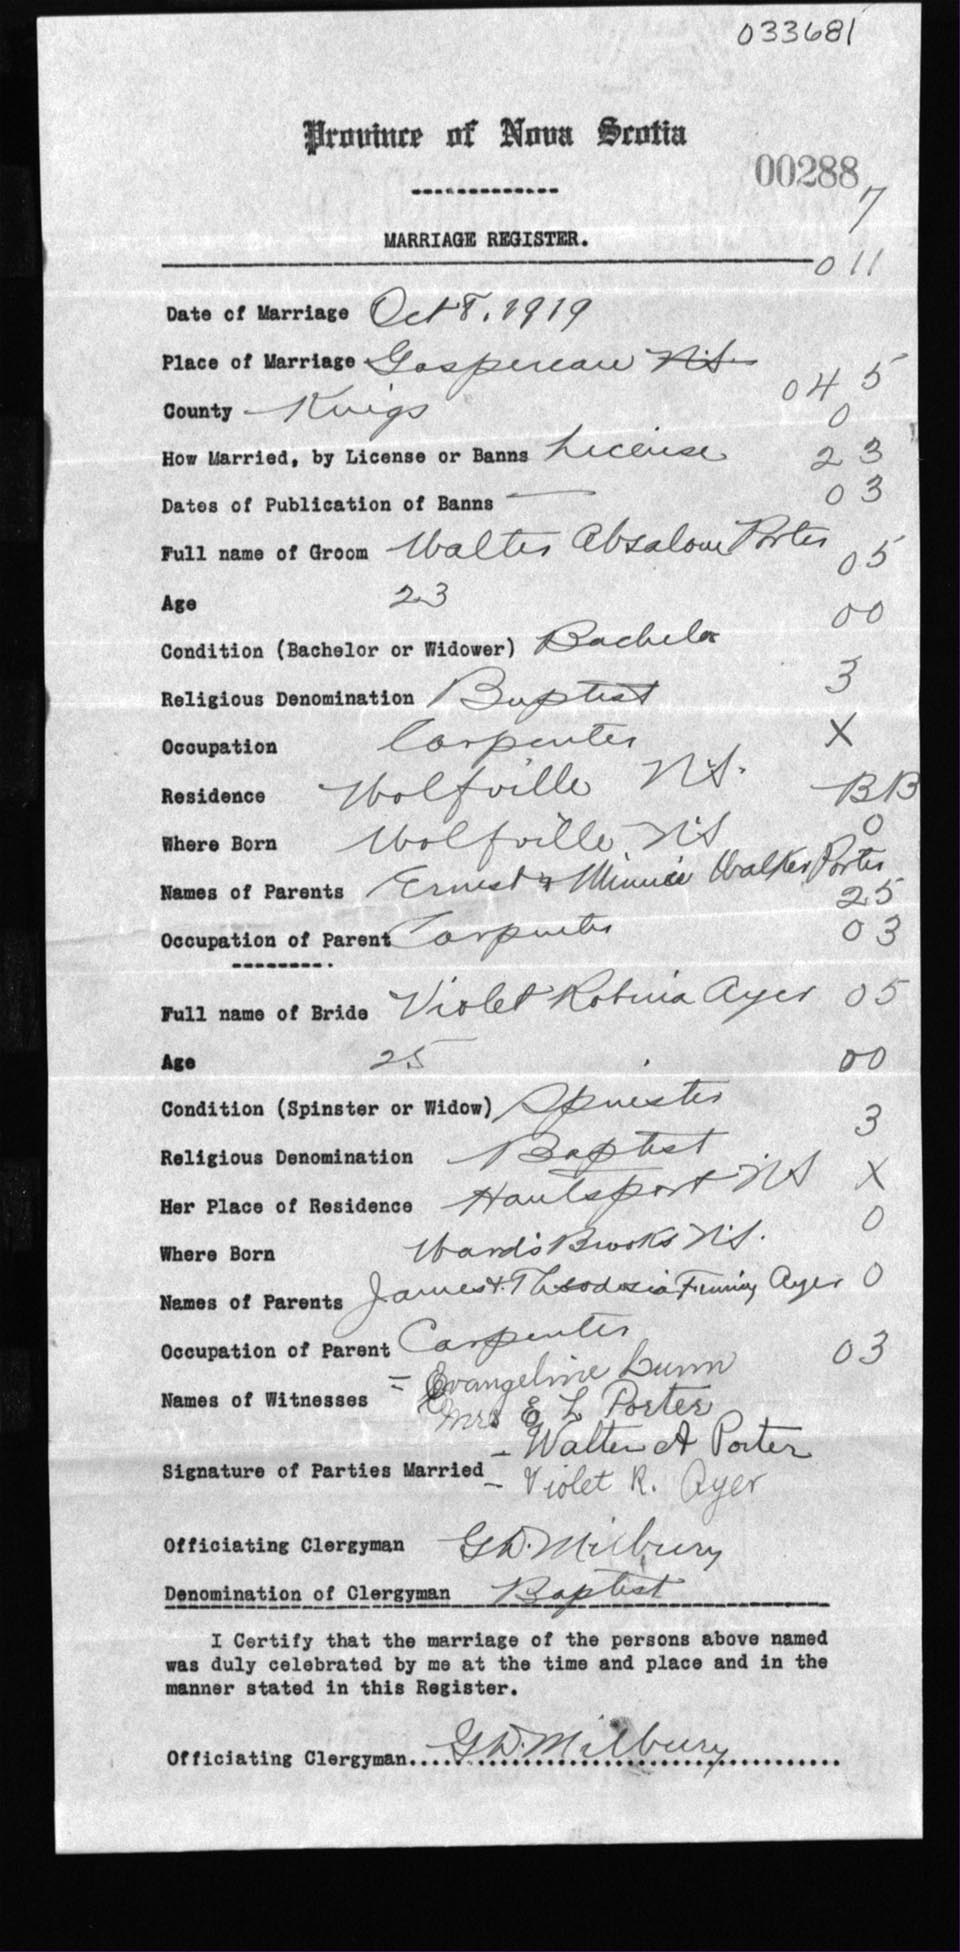 033681
Province of Nova Scotia
00288
7
MARRIAGE REGISTER.
011
Date of Marriage Oct 8, 1919
Place of Marriage Gaspereau N.S.
04 5
County Kings
0
How Married, by License or Banns License
23
Dates of Publication of Banns —
03
Full name of Groom Walter Absalom Porter
05
Age 23
00
Condition (Bachelor or Widower) Bachelor
Religious Denomination Baptist
3
Occupation Carpenter
X
Residence Wolfville N.S.
BB
Where Born Wolfville N.S
0
Names of Parents Ernest & Minnie Walker Porter
25
Occupation of Parent Carpenter
03
Full name of Bride Violet Robina Ayer 05
Age 25
00
Condition (Spinster or Widow) Spinster
3
Religious Denomination Baptist
Her Place of Residence Hantsport N.S
X
Where Born Ward's Brooks N.S.
0
Names of Parents James & Theodosia Ayer 0
Occupation of Parent Carpenter
03
Names of Witnesses = Evangeline Lunn
Mrs E L Porter
Signature of Parties Married - Walter A Porter
- Violet R. Ayer
Officiating Clergyman G.D. Milbury
Denomination of Clergyman Baptist
I Certify that the marriage of the persons above named
was duly celebrated by me at the time and place and in the
manner stated in this Register.
Officiating Clergyman.... G.D. Milbury